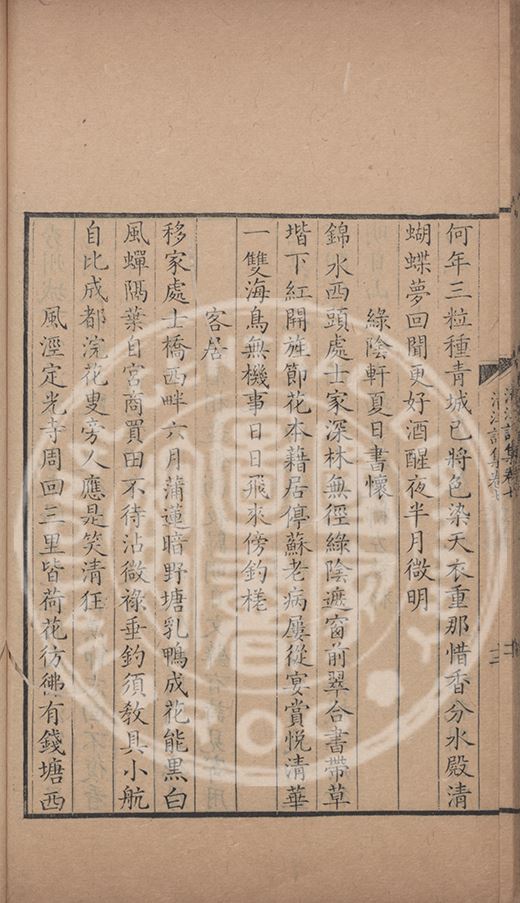 何年三粒種青城已將色染天衣重那惜香分水殿清
蝴蝶夢回聞更好酒醒夜半月微明
綠陰軒夏日書懷
錦水西頭處士家深林無徑綠陰遮窗前翠合書帶草
堦下紅開旌節花本藉居停蘇老病屢從宴賞悅清華
一雙海鳥無機事日日飛來傍釣槎
客居
移家處士橋西畔六月蒲蓮暗野塘乳鴨成花能黑白
風蟬隅葉自宮商買田不待沾微祿垂釣須教具小航
自比成都浣花叟旁人應是笑清狂
風涇定光寺周回三里皆荷花彷彿有錢塘西